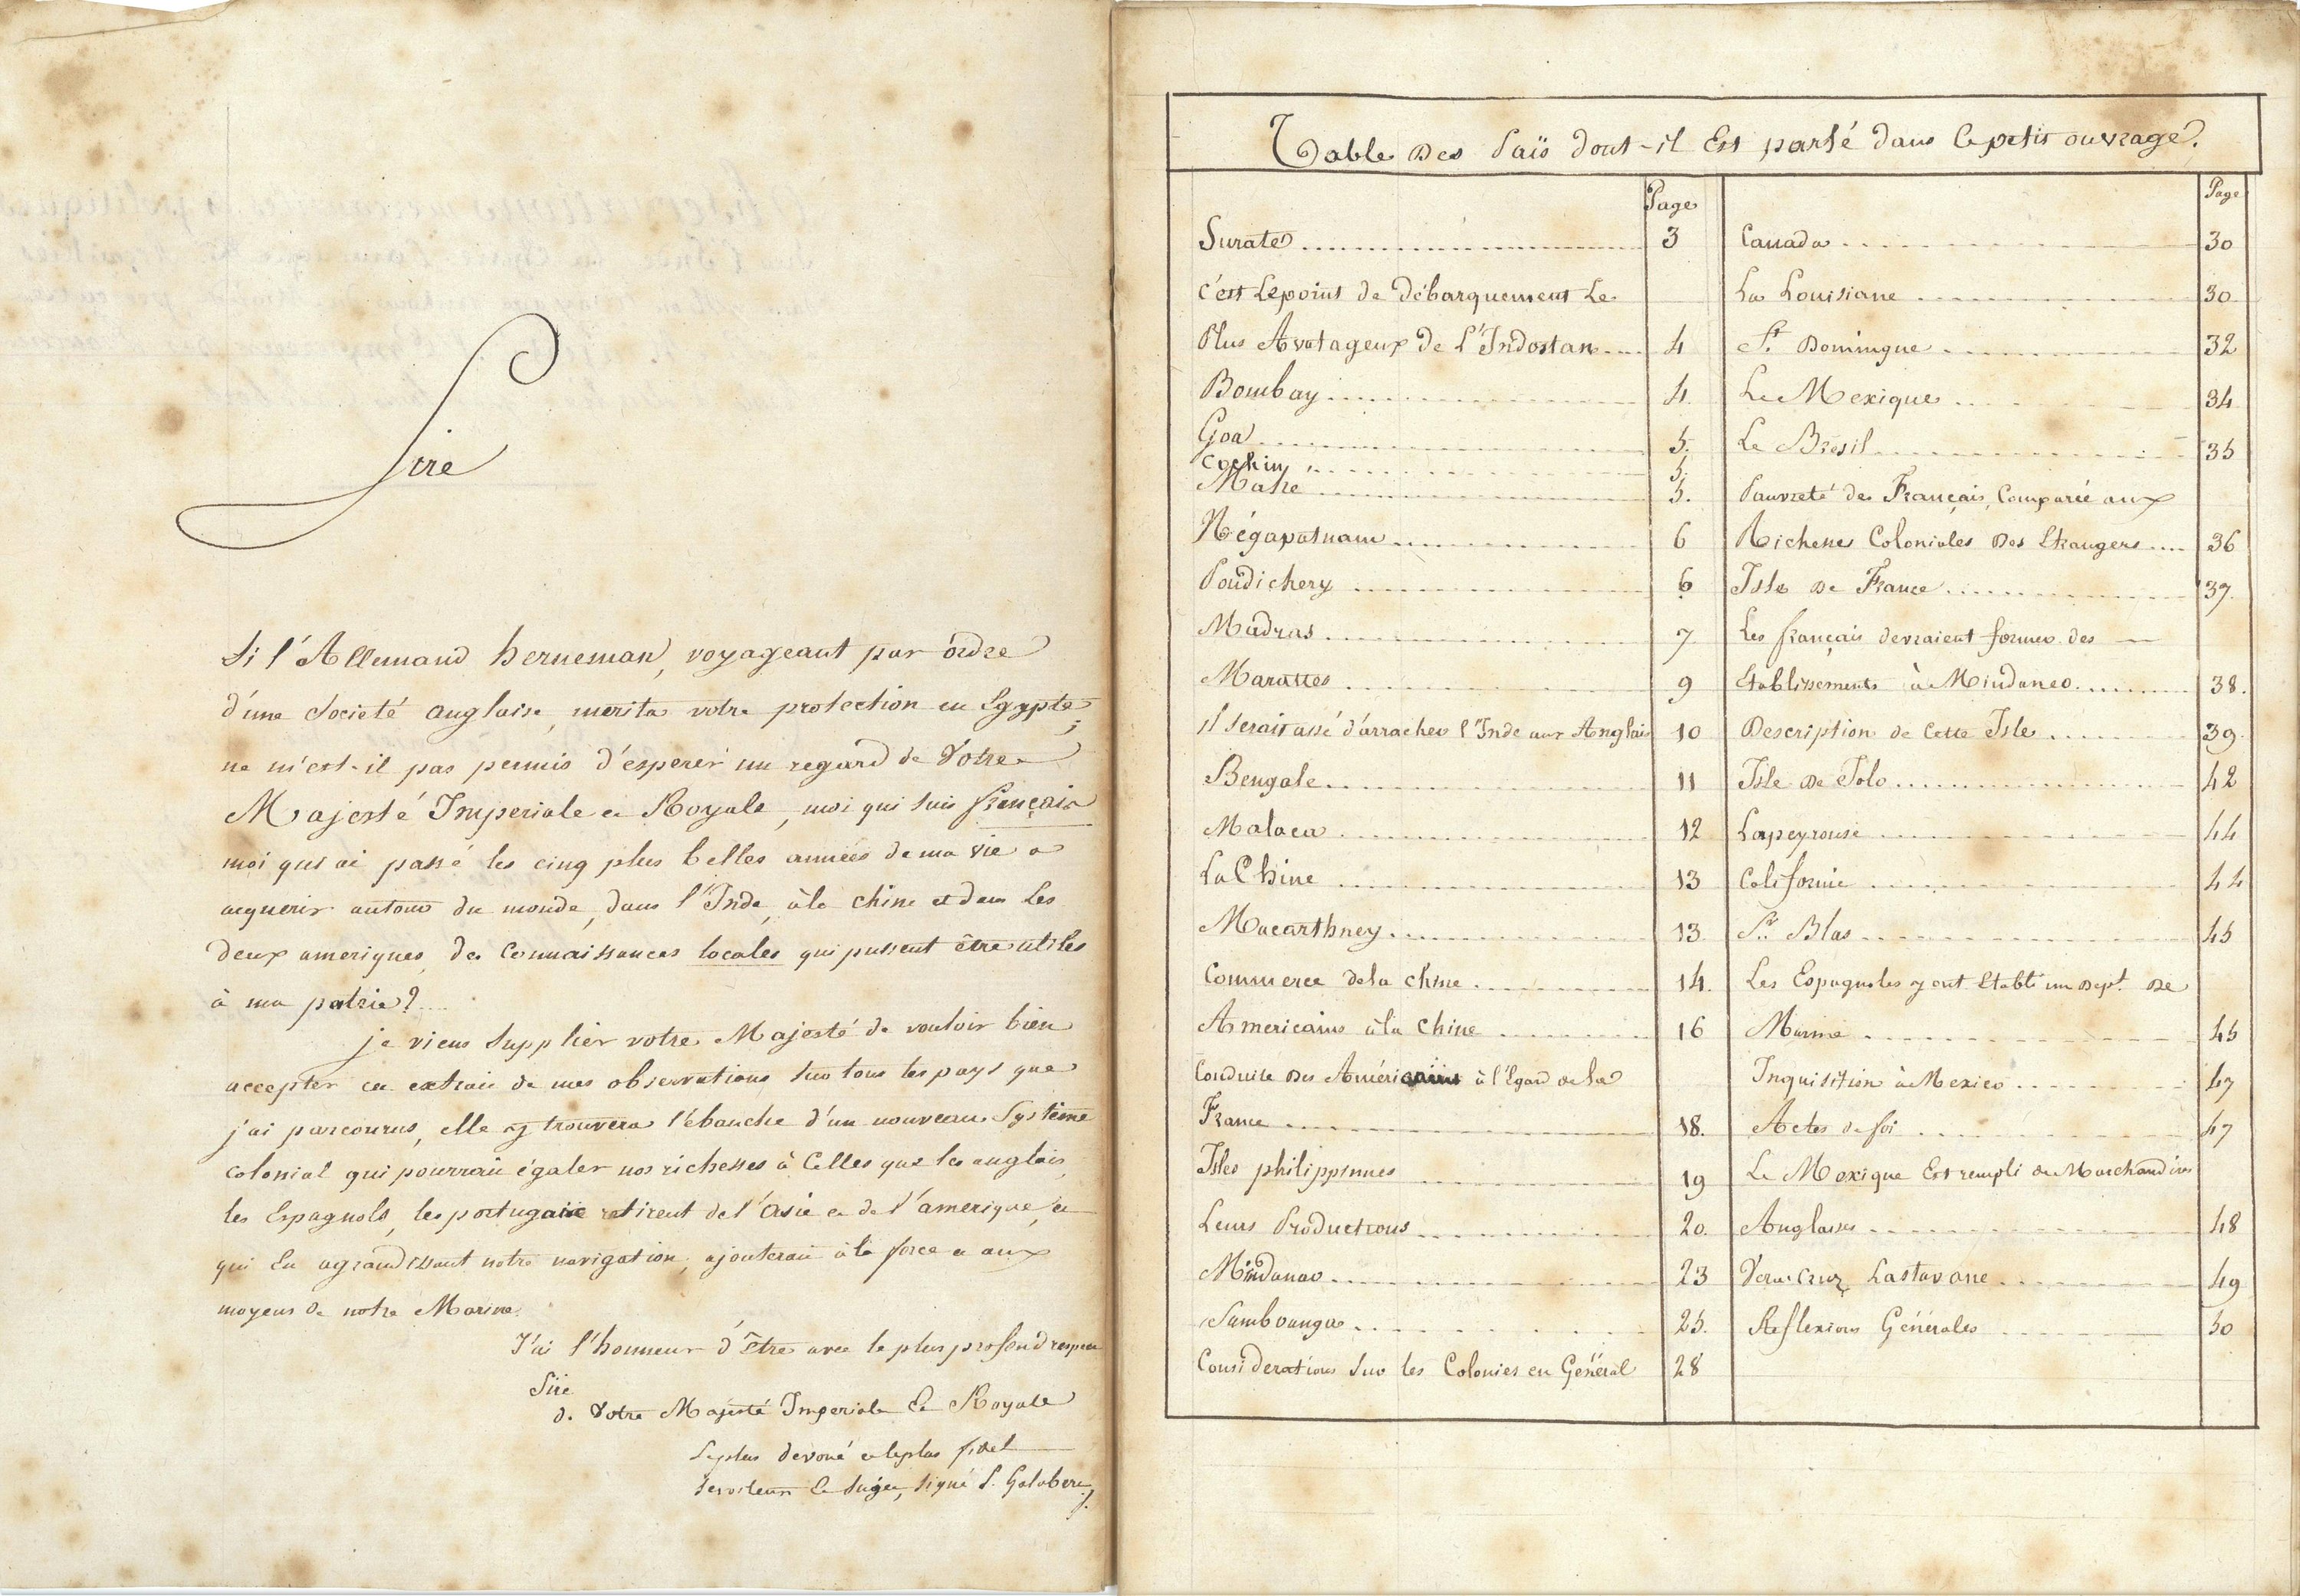 Sire
Si l'Allemand herneman, voyageant par ordre
d'une Societé anglaise, merita votre protection en Egypte;
ne m'est-il pas permis d'esperér un regard de Votre
Majesté Imperiale et Royale, moi qui suis français
moi qui ai passé les cinq plus belles années de ma vie a
acquerir autour du monde, dans l'Inde, à la chine et dans Les
deux ameriques, des Connaissances locales qui pussent être utiles
à ma patrie?
je viens Supplier votre Majesté de vouloir bien
accepter cet extrait de mes observations sur tous les pays que
j'ai parcourus, elle y trouvera l'ébauche d'un nouveau Système
Colonial qui pourrait égaler nos richesses à Celles que les anglais,
les Espagnols, les portugais retirent de l'asie et de l'amerique, et
qui En agrandissant notre navigation, ajouterait à la force et aux
moyens de notre Marine.
J'ai l'honneur d'être avec le plus profond respect
Sire
de Votre Majesté Imperiale Et Royale
Le plus devoué et le plus fidel
Serviteur Et Sujet, Signé P. Galabert
Table Des Païs dont-il Est parlé dans Ce petit ouvrage.
Page
Page
Surate 3
c'est Le point de débarquement Le
Plus Avatageux de L'Indostan 4
Bombay 4
Goa 5.
Cochin 5.
Mahé 5.
Négapatnam 6
Pondichery 6
Madras 7
Marattes 9
il serait aisé d'arracher l'Inde aux Anglais 10
Bengale 11
Malaca 12
La Chine 13
Macarthney 13
Commerce de la Chine 14.
Americains à la Chine 16
Conduite Des Américains à l'Egard de La
France 18.
Isles philippinnes 19
Leurs Productions 20.
Mindanao 23
Sambouanga 25.
Considerations Sur les Colonies en Général 28
Canada 30
La Louisiane 30
St. Domingue 32
Le Mexique 34
Le Bresil 35
Pauvreté des Français, Comparée aux
Richesses Coloniales Des Etrangers 36
Isle De France 37.
Les français devraient former des
Etablissements à Mindaneo 38.
Description de Cette Isle 39.
Isle De Jolo 42
Lapeyrouse 44
Californie 44
St. Blas 45
Les Espagnoles y ont Etabli un Dept. De
Marine 45
Inquisition à Mexico 47
Actes de foi 47
Le Mexique Est rempli de Marchandises
Anglaises 48
Vera-Cruz Lastavane 49
Reflexions Générales 50